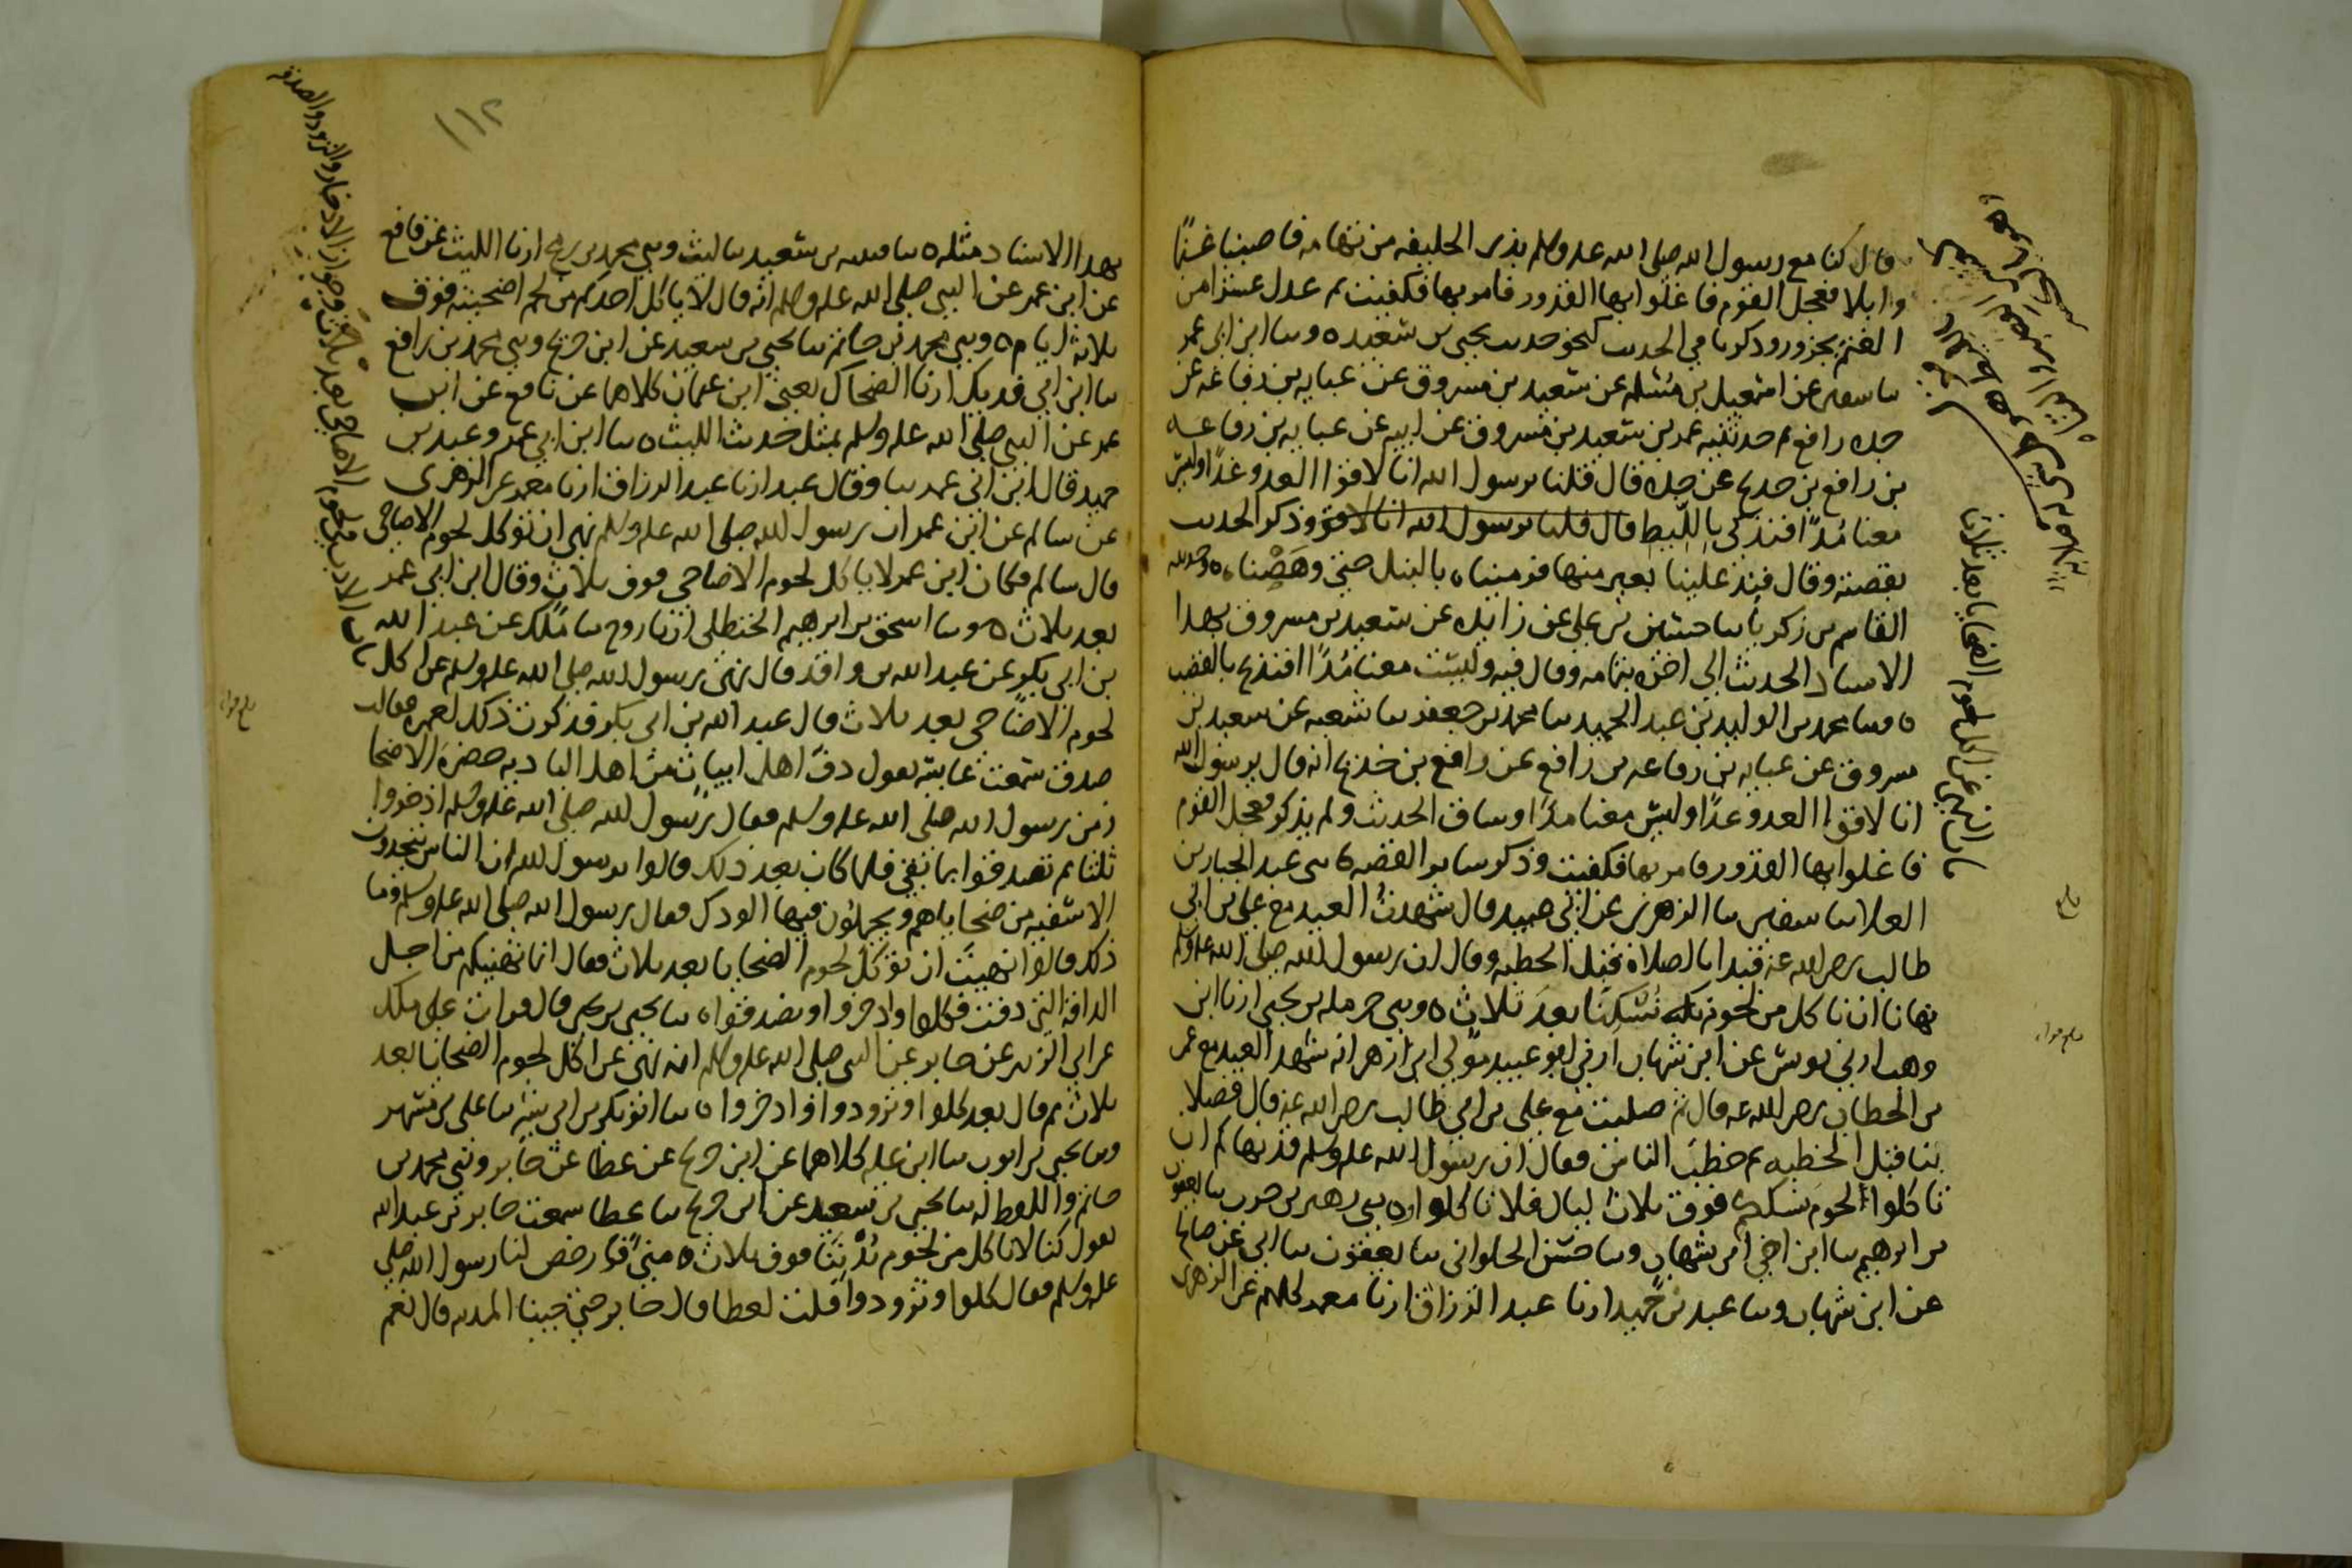 قال كنا مع رسول الله صلى الله عليه وسلم بذى الحليفه من تهامه فاصبنا غنمًا
وابلا فعجل القوم فاغلوا بها القدور فامر بها فكفيت ثم عدل عشرا من
الغنم بجزور وذكر نا في الحديث كنحو حديث يحيى بن سعيد ٥ وسا ابن ابى عمر
سا سفين عن اسمعيل بن مسلم عن سعيد بن مسروق عن عبايه بن رفاعه عن
جده رافع ثم حدثنيه عمر بن سعيد بن مسروق عن ابيه عن عبايه بن رفاعه
بن رافع بن خديج عن جده قال قلنا يرسول الله انا لاقوا العدو غدًا وليس
معنا مُدًا فنذكى بالليط قال قلنا يرسول الله انا لاقو وذكر الحديث
بقصته وقال فيند علينا بعير منها فرميناه بالنبل حتى وهصناه ٥ وحدثنيه
القاسم بن زكريا سا حسين بن على عن زايده عن سعيد بن مسروق بهذا
الاسناد الحديث الى اخره بتمامه وقال فيه وليست معنا مُدًا افنذبح بالقصب
٥ وسا محمد بن الوليد بن عبد الحميد سا محمد بن جعفر سا شعبه عن سعيد بن
مسروق عن عبايه بن رفاعه بن رافع عن رافع بن خديج انه قال يرسول الله
انا لاقوا العدو غدًا وليس معنا مدًا وساق الحديث ولم يذكر فعجل القوم
فاغلوا بها القدور فامر بها فكفيت وذكر ساير القصه ٥ سى عبد الجبار بن
العلا سا سفين سا الزهرى عن ابي عبيد قال شهدت العيد مع على بن ابى
طالب رضى الله عنه فبدا بالصلاة قبل الخطبه وقال ان رسول الله صلى الله عليه وسلم
نهانا ان ناكل من لحوم نسكنا بعد ثلاث ٥ وسى حرمله بن يحيى ارنا ابن
وهب ارنى يونس عن ابن شهاب ارنى ابو عبيد مولى ابن ازهر انه شهد العيد مع عمر
بن الخطاب رضى الله عنه قال ثم صليت مع على بن ابي طالب رضى الله عنه قال فصلا
بنا قبل الخطبه ثم خطب الناس فقال ان رسول الله عليه وسلم قد نهاكم ان
تاكلوا لحوم نسككم فوق ثلاث ليال فلا تاكلوا ٥ وسى زهير بن حرب سا يعقوب
بن ابرهيم سا ابن اخي ابن شهاب وسا حسن الحلوانى سا يعقوب سا ابي عن صالح
عن ابن شهاب وسا عبد بن حميد ارنا عبد الرزاق ارنا معمر كلهم عن الزهرى
باب النهي عن اكل لحوم الضحايا بعد ثلاث
بلغ
١١٢
بهذا الاسناد مثله ٥ سا قتيبه بن سعيد سا ليث وسى محمد بن رمح ارنا الليث عن نافع
عن ابن عمر عن النبى صلى الله عليه وسلم انه قال لا ياكل احدكم من لحم اضحيته فوق
ثلاثه ايام ٥ وسى محمد بن حاتم سا يحيى بن سعيد عن ابن جريج وسى محمد بن رافع
سا ابن ابى فديك ارنا الضحاك يعنى ابن عثمان كلاهما عن نافع عن ابن
عمر عن النبى صلى الله عليه وسلم بمثل حديث الليث ٥ سا ابن ابي عمر وعبد بن
حميد قال ابن ابى عمر سا وقال عبد ارنا عبد الرزاق ارنا معمر عن الزهرى
عن سالم عن ابن عمر ان رسول الله صلى الله عليه وسلم نهى ان توكل لحوم الاضاحى
قال سالم فكان ابن عمر لا ياكل لحوم الاضاحى فوق ثلاث وقال ابن ابي عمر
بعد ثلاث ٥ وسا اسحق بن ابرهيم الحنظلى ارنا روح سا ملك عن عبد الله
بن ابى بكر عن عبد الله بن واقد قال نهى رسول الله صلى الله عليه وسلم عن اكل
لحوم الاضاحى بعد ثلاث قال عبد الله بن ابى بكر فذكرت ذلك لعمره فقالت
صدق سمعت عايشه تقول دف اهل ابيات من اهل الباديه حضره الاضحا
زمن رسول الله صلى الله عليه وسلم فقال رسول الله صلى الله عليه وسلم اذخروا
ثلثا ثم تصدقوا بما بقى فلما كان بعد ذلك قالوا يرسول الله ان الناس يتخذون
الاسقيه من ضحاياهم ويجملون فيها الودك فقال رسول الله صلى الله عليه وسلم وما
ذلك قالوا نهيت ان توكل لحوم الضحايا بعد ثلاث فقال انما نهيتكم من اجل
الدافه التى دفت فكلوا وادخروا وتصدقوا ٥ سا يحيى بن يحيى قال قرات على ملك
عن ابى الزبير عن جابر عن النبى صلى الله عليه وسلم انه نهى عن اكل لحوم الضحايا بعد
ثلاث ثم قال بعد كلوا وتزودوا وادخروا ٥ سا ابو بكر بن ابى شيبه سا على بن مسهر
وسا يحيى بن ايوب سا ابن عليه كلاهما عن ابن جريج عن عطا عن جابر وسى محمد بن
حاتم واللفظ له سا يحيى بن سعيد عن ابن جريج سا عطا سمعت جابر بن عبد الله
يقول كنا لا ناكل من لحوم بُدْنِنَا فوق ثلاث ٥ منى فارخص لنا رسول الله صلى
عليه وسلم فقال كلوا وتزودوا قلت لعطا قال جابر حتى جينا المدينه قال نعم
باب الاذن فى لحوم الاضاحى بعد ثلاث وجواز الادخار والتزود والصدقه